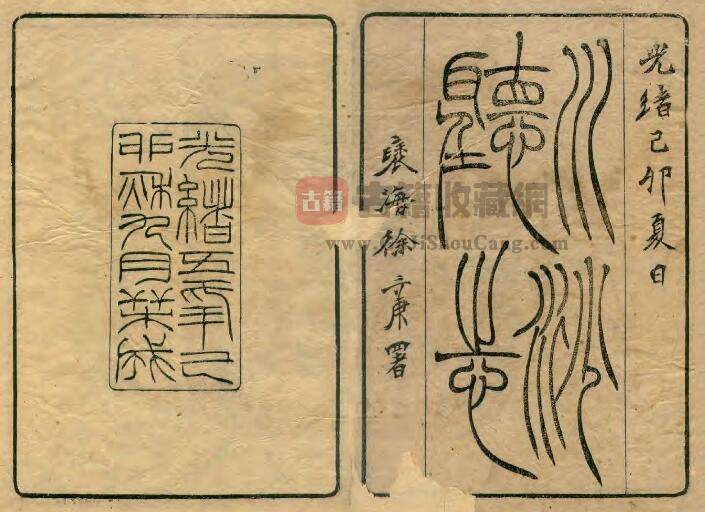 光緒己卯夏日
川沙
聽志
褎海徐三庚署
光緒五年己
卯秋九月栞成
古籍
古籍收藏網
www.GuJiShouCang.com